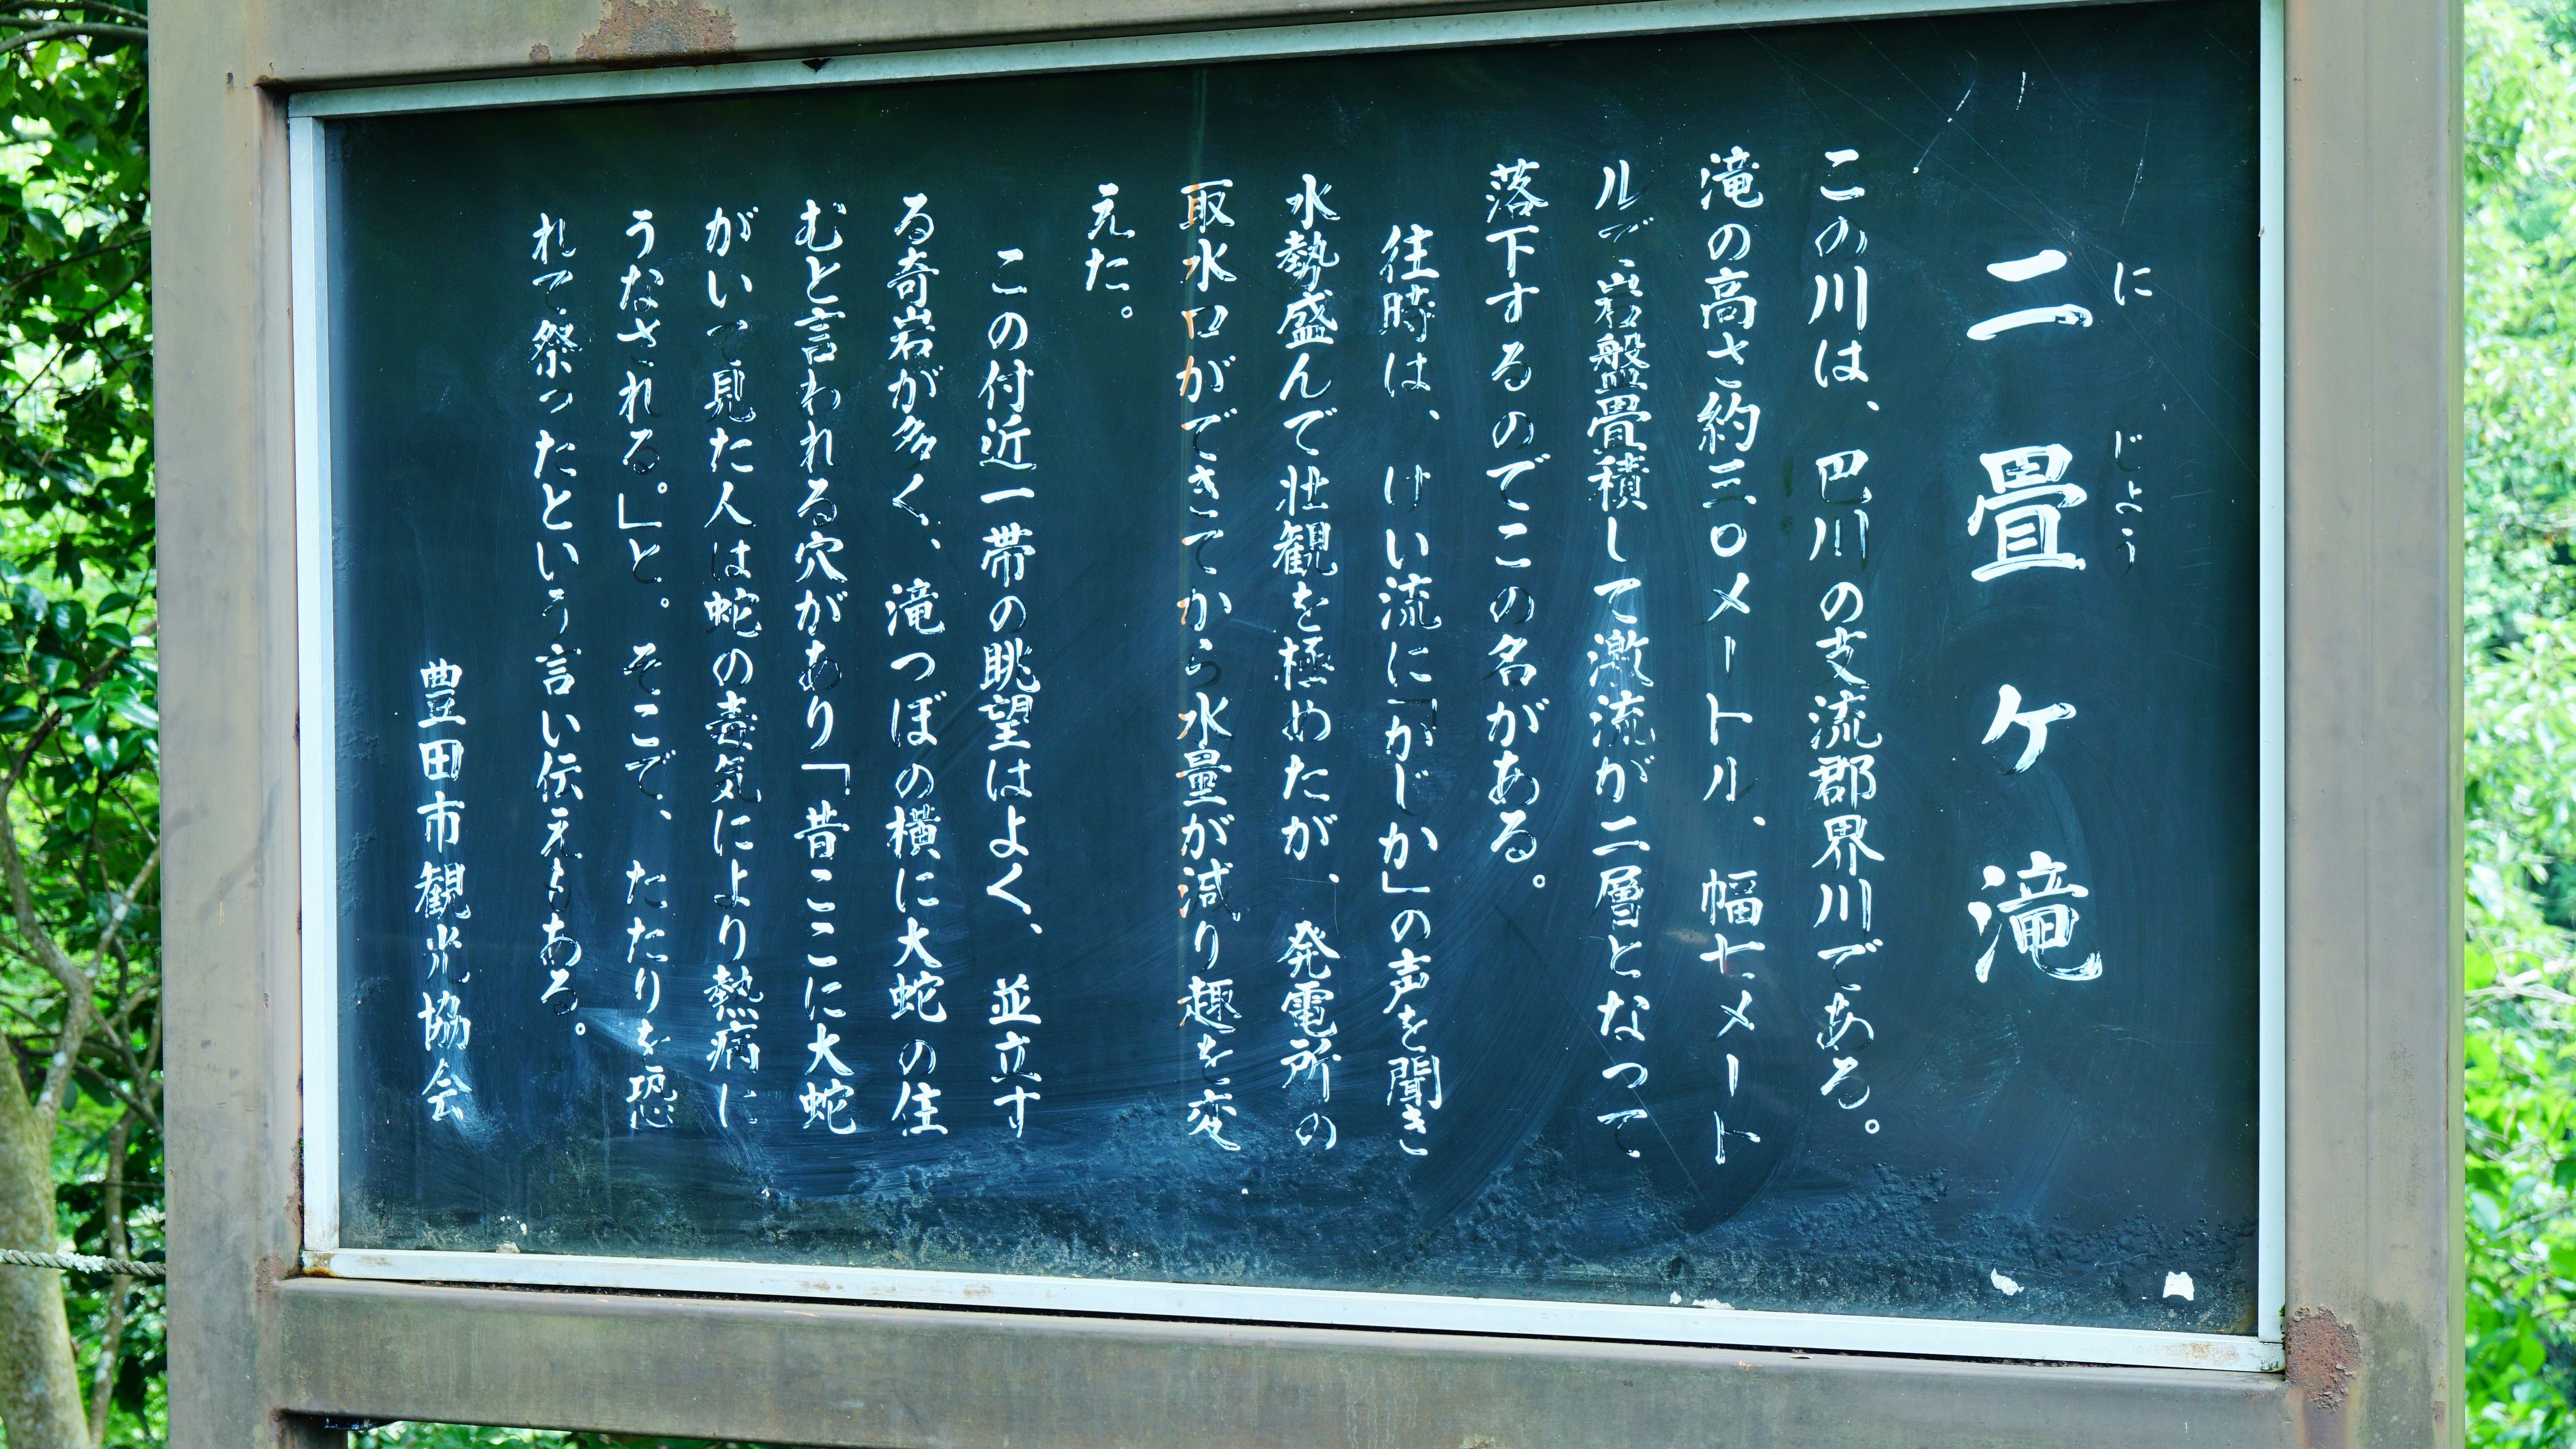 二畳ヶ滝
に じょう
この川は、巴川の支流郡界川である。
滝の高さ約三〇メートル、幅七メート
ルで岩盤畳積して激流が二層となって
落下するのでこの名がある。
往時は、けい流に「かじか」の声を聞き
水勢盛んで壮観を極めたが、発電所の
取水口ができてから水量が減り趣を変
えた。
この付近一帯の眺望はよく、並立す
る奇岩が多く、滝つぼの横に大蛇の住
むと言われる穴があり「昔ここに大蛇
がいて見た人は蛇の毒気により熱病に
うなされる。」と。そこで、たたりを恐
れて祭ったという言い伝えもある。
豊田市観光協会